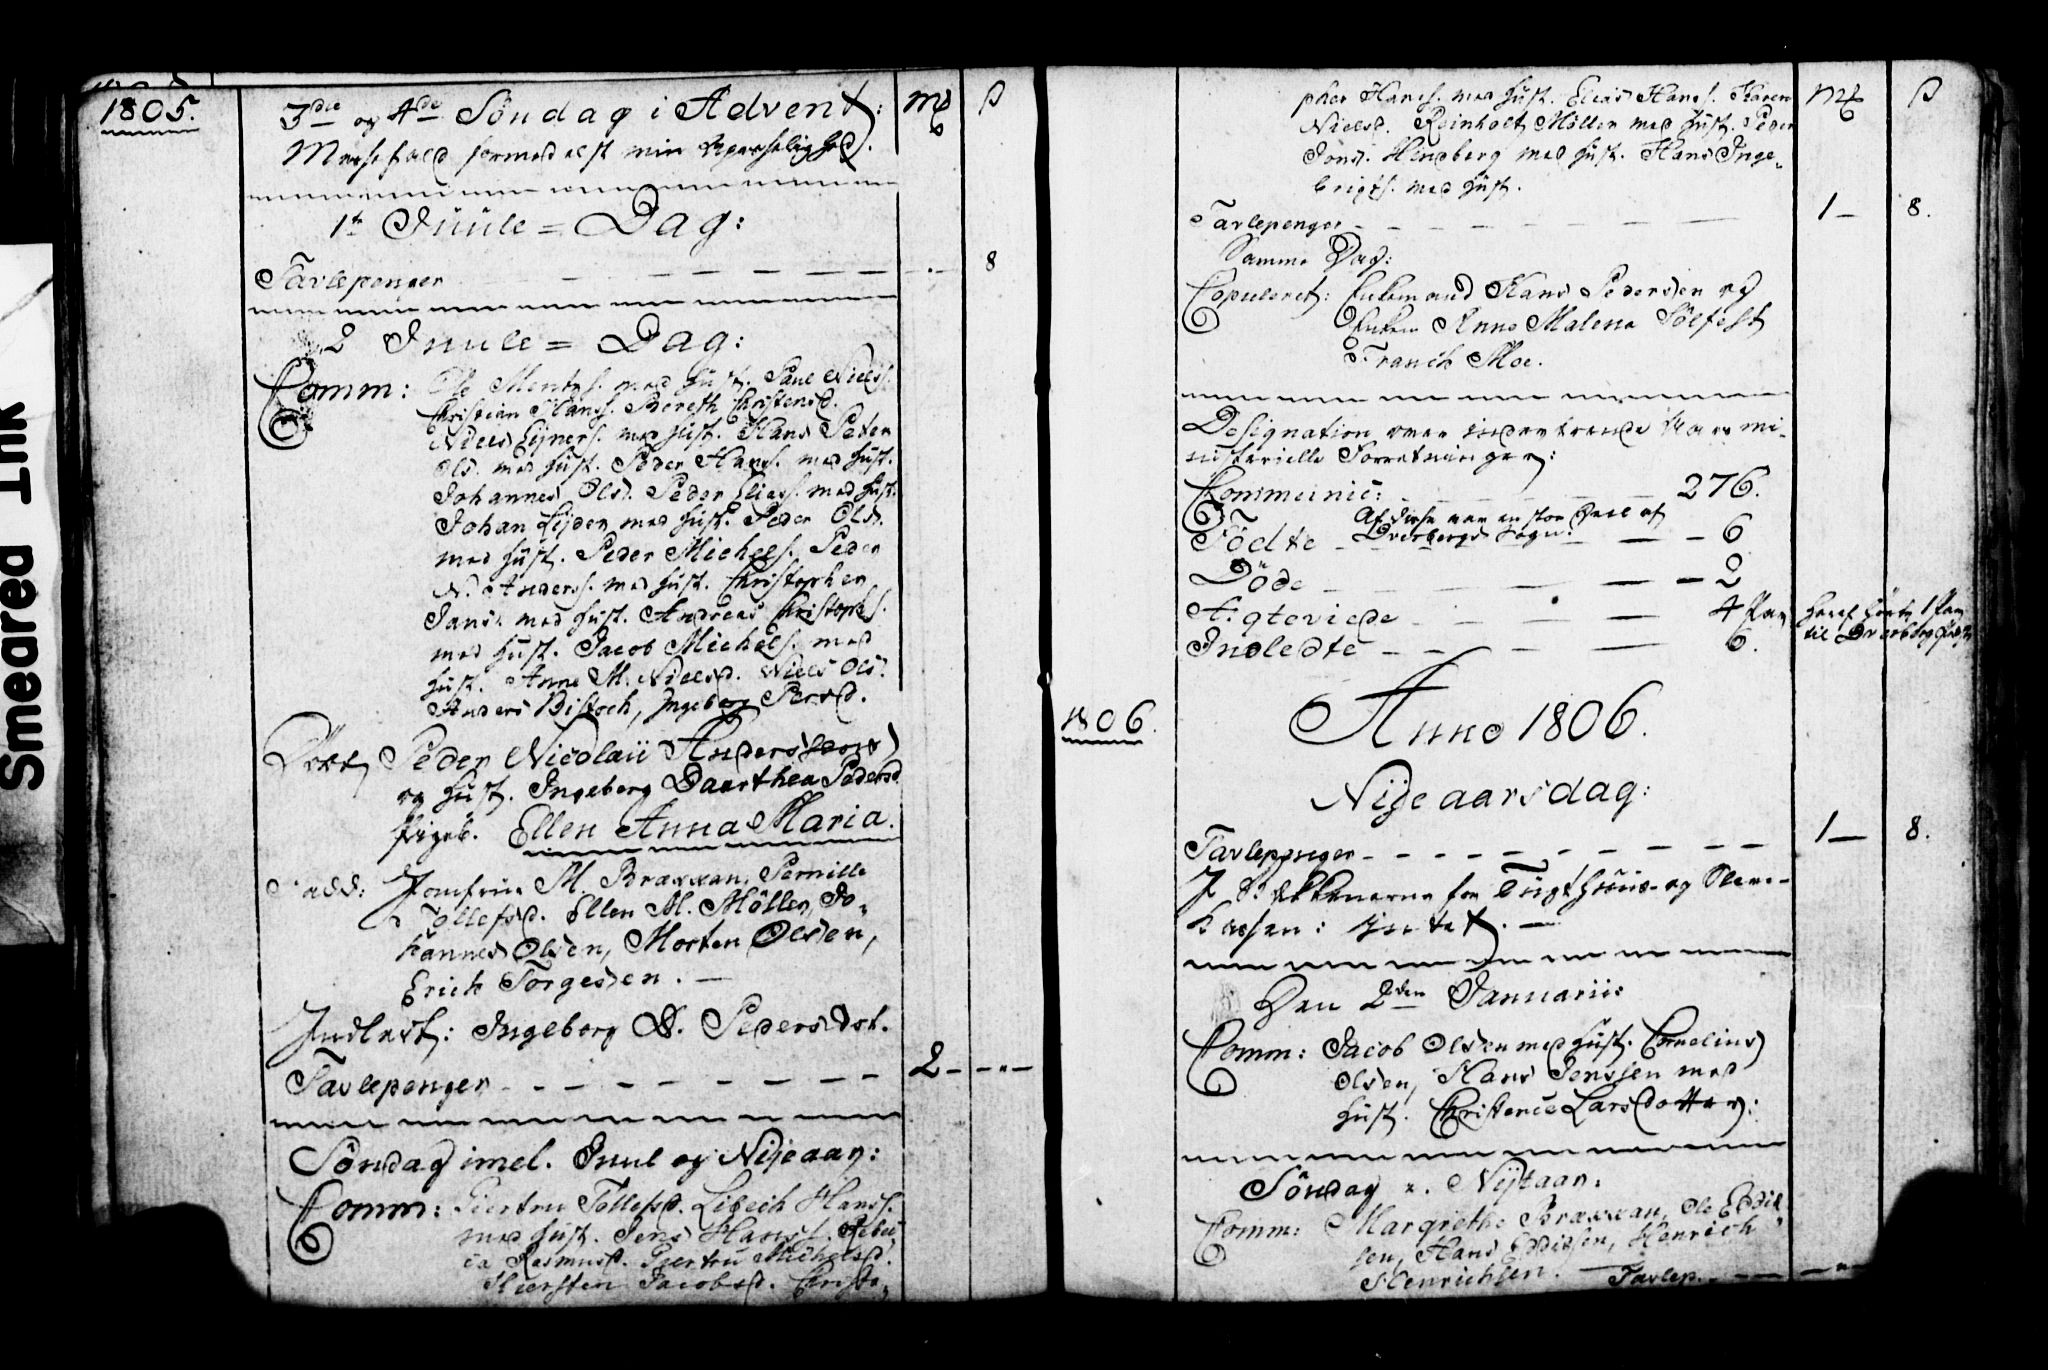 Smeared Ink
1805.
3die og 4de Söndag i Advent: mk ß
Messefald formedelst min Upasselighed.
1te Juule = Dag:
Tavlepenger - 8
2 Juule = Dag:
Comm: Ole Mentzs. med Hust. Paul Nielss.
Christian Hanss. Bereth Christensd.
Niels Ejners. med Hust. Hans Peter
Ols. med Hust. Peder Hanss. med Hust.
Johannes Ols. Peder Eliass. med Hust.
Johan Lijder med Hust. Peder Ols.
med Hust. Peder Michels. Peder
N. Anderss. med Hust. Christopher
Jans. med Hust. Andreas Christophs.
med Hust. Jacob Michels. med
Hust. Anne M. Nielsd. Niels Ols.
Anders Bistoch, Ingeborg Persd.
Döbt, Peder Nicolaii Anderssens
og Hust. Ingeborg Daarthea Pedersd.
Pigeb. Ellen Anna Maria.
Fadd: Jomfrue M. Bræxxan, Pernille
Tollefsd. Ellen M. Möller, Jo-
hannes Olsen, Morten Olsen,
Erich Torgersen.
Indledt: Ingeborg D. Pedersdst.
Tavlepenger - 2 -
Söndag imel. Juul og Nijeaar:
Comm: Giertru Tollefsd. Libech Hanss.
med Hust. Jens Hanss. Rebec-
ca Rasmusd. Giertru Michelsd.
Kiersten Jacobsd. Christo-
pher Hanss. med Hust. Elias Hanss. Karen mk ß
Nielsd. Reinholt Möller med Hust. Peder
Jons. Hendberg med Hust. Hans Inge-
brigts. med Hust.
Tavlepenger - 1 - 8.
Samme Dag:
Copuleret: Enkemand Hans Pedersen og
Enken Anne Malena Sölfest
Franch Moe.
Designation over indeværende Aars mi-
nisterielle Forretninger:
Communic: - 276.
Af disse var en stor Deel af
Dverbergs Sogn.
Födte - 6
Döde - 2
Ægteviede - 4 Par
heraf hörte 1 Par
til Dverberg
Indledte - 6.
1806.
Anno 1806.
Nije aarsdag:
Tavlepenger - 1 - 8.
I Bekkenerne for Tugthuus- og
Kassen: Intet.
Den 2den Januarii:
Comm: Jacob Olsen med Hust. Cornelius
Olsen, Hans Jenssen med
Hust. Christence Larsdotter:
Söndag e. Nijtaar.
Comm: Margrethe Bræxxan, Ole Eddis-
sen, Hans Eddissen, Henrich
Henrichsen. - Tavlep. -